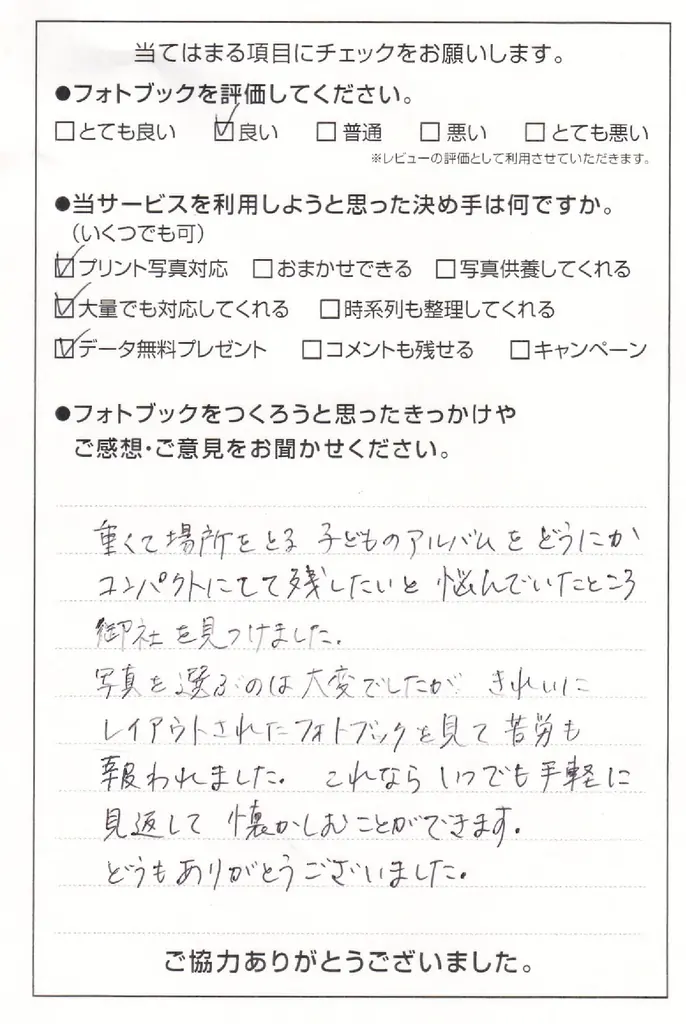 当てはまる項目にチェックをお願いします。
●フォトブックを評価してください。
□とても良い ☑良い □普通 □悪い □とても悪い
※レビューの評価として利用させていただきます。
●当サービスを利用しようと思った決め手は何ですか。
(いくつでも可)
☑プリント写真対応 □おまかせできる □写真供養してくれる
☑大量でも対応してくれる □時系列も整理してくれる
☑データ無料プレゼント □コメントも残せる □キャンペーン
●フォトブックをつくろうと思ったきっかけや
ご感想・ご意見をお聞かせください。
重くて場所をとる 子どものアルバムを どうにか
コンパクトにして残したいと 悩んでいたところ
御社を見つけました。
写真を選ぶのは大変でしたが きれいに
レイアウトされたフォトブックを見て苦労も
報われました。 これなら いつでも手軽に
見返して 懐かしむことができます。
どうもありがとうございました。
ご協力ありがとうございました。